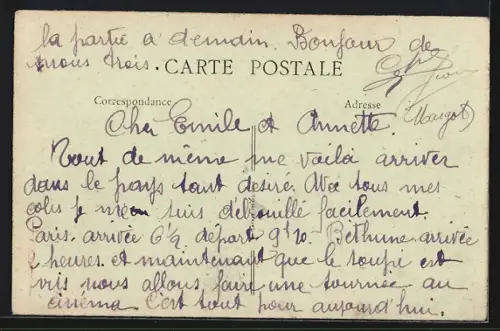 la partie à demain. Bonjour de
nous trois.
CARTE POSTALE
Correspondance
Adresse
(Margot)
Cher Emile et Annette.
Tout de même me voilà arriver
dans le pays tant désiré. Avec tous mes
colis je m'en suis débrouillé facilement.
Paris. arrivée 6½ départ 9h10. Béthune arrivée
2 heures. et maintenant que le soupé est
pris nous allons faire une tournée au
cinéma C'est tout pour aujourd'hui.